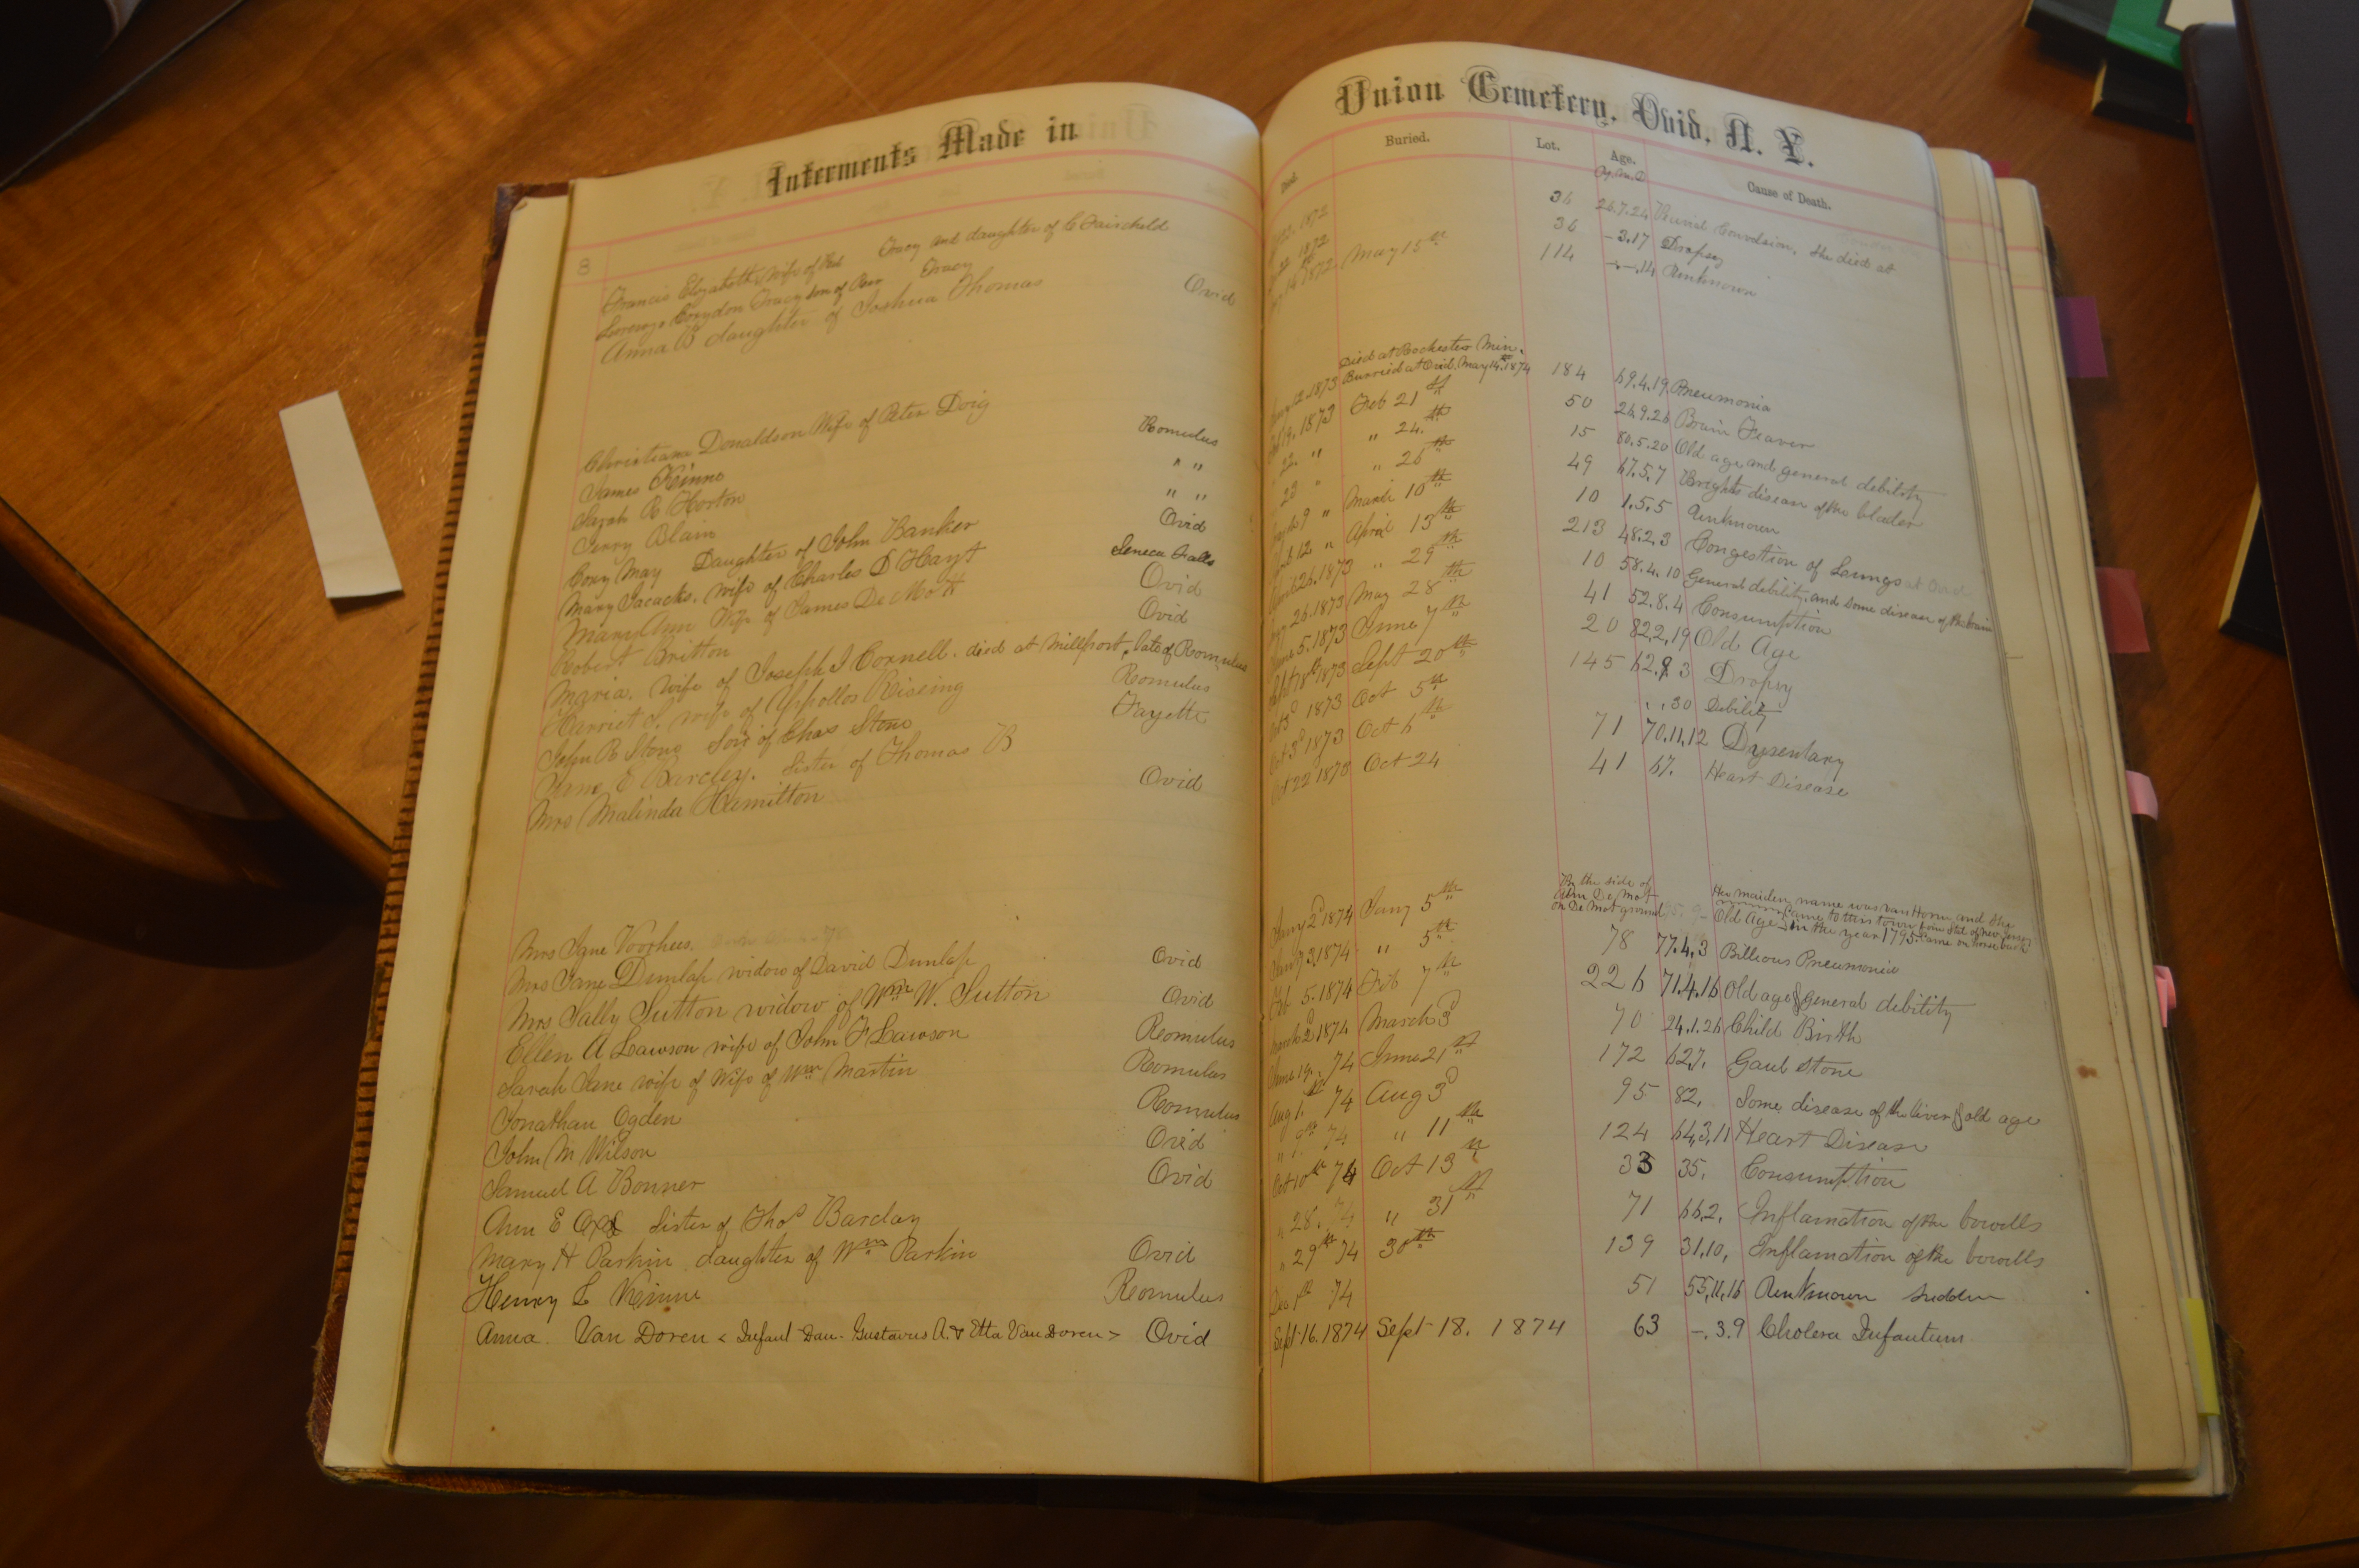 Interments Made in
8
Francis Elizabeth, wife of Tracy and daughter of C Fairchild
Lorenzo Corydon Tracy son of Tracy
Anna B daughter of Joshua Thomas Ovid
Christiana Donaldson Wife of Peter Doig
James Kinne Romulus
Sarah R Horton " "
Terry Blain " "
Cory May Daughter of John Banker Ovid
Mary Jacacks. wife of Charles D Hayt Seneca Falls
Mary Ann Wife of James De Mott Ovid
Robert Britton Ovid
Maria. wife of Joseph I Cornell. died at Millport, late of Romulus
Harriet S. wife of Appollos Riseing Romulus
John R Stone Son of Chas Stone Fayette
Jane E Barcley. Sister of Thomas B
Mrs Malinda Hamilton Ovid
Mrs Jane Voorhees.
Mrs Jane Dunlap widow of David Dunlap Ovid
Mrs Sally Sutton widow of Wm W. Sutton Ovid
Ellen A Lawson wife of John F Lawson Romulus
Sarah Jane wife of Wife of Wm Martin Romulus
Jonathan Ogden Romulus
John M Wilson Ovid
Samuel A Bonner Ovid
Ann E Sister of Thos Barclay
Mary H Parkin daughter of Wm Parkin Ovid
Henry L Kinne Romulus
Anna. Van Doren < Infant Dau. Gustavus A. & Etta Van Doren > Ovid
Union Cemetery, Ovid, N. Y.
Died. Buried. Lot. Age. Cause of Death.
Y. M. D
1872 36 26.7.24 Convulsion. She died at
1872 36 -3.17 Dropsy
1872 May 15th 114 -.-.14 Unknown
Died at Rochester Min.
1873 Burried at Ovid. May 14th 1874 184 69.4.19 Pneumonia
19. 1873 Feb 21st 50 26.9.26 Brain Feaver
22. " " 24.th 15 80.5.20 Old age and general debility
23 " " 26th 49 67.5.7 Brights disease of the blader
March 9 " March 10th 10 1.5.5 Unknown
12 " April 15th 213 48.2.3 Congestion of Loungs at Ovid
26. 1873 " 29th 10 58.4.10 General debility and some disease of the brain
26. 1873 May 28th 41 52.8.4 Consumption
June 5. 1873 June 7th 20 82.2.19 Old Age
Sept 18th 1873 Sept 20th 145 62.9.3 Dropsy
Oct 3d 1873 Oct 5th , , 30 Debility
Oct 3d 1873 Oct 6th 71 70.11.12 Dysentary
Oct 22 1873 Oct 24 41 67. Heart Disease
By the side of
Abm De Mot
on De Mot ground
Her maiden name was van Horn and she
came to this town from Stat of new Jersey
in the year 1795. Came on horse back
Jany 2d 1874 Jany 5th Old Age
Jany 3 1874 " 5th 78 77.4.3 Billious Pneumonia
Feb 5. 1874 Feb 7th 226 71.4.16 Old age & general debility
March 2d 1874 March 3d 70 24.1.26 Child Birth
June 19. 74 June 21st 172 62.7. Gaul Stone
Aug 1.st 74 Aug 3d 95 82. Some disease of the liver & old age
" 9th 74 " 11th 124 64.3.11 Heart Disease
Oct 10th 74 Oct 13th 33 35. Consumption
" 28. 74 " 31st 71 66.2. Inflamation of the bowells
" 29th 74 30th 139 31.10. Inflamation of the bowells
Dec 1st 74 51 55.11.16 Unknown sudden
Sept 16. 1874 Sept 18. 1874 63 -.3.9 Cholera Infantum